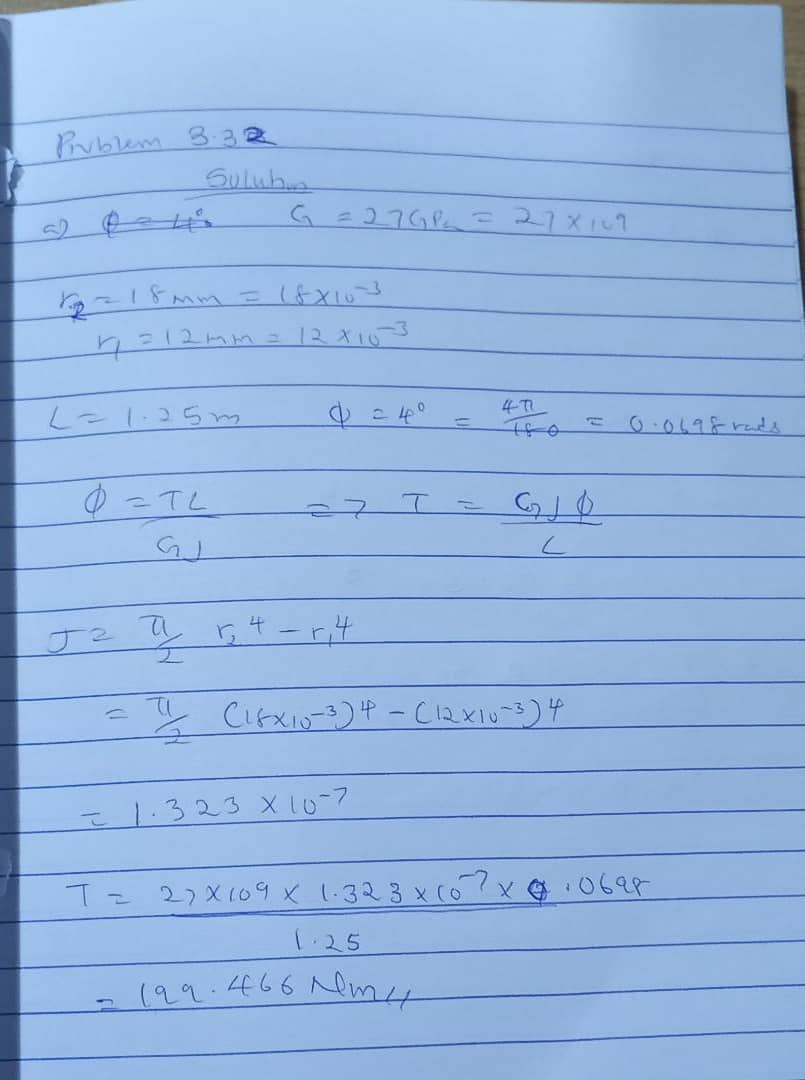 Problem 3.32
Solution
a) ϕ = 4° G = 27GPa = 27 × 10⁹
r₂ = 18mm = 18×10⁻³
r₁ = 12mm = 12 × 10⁻³
L = 1.25m ϕ = 4° = 4π/180 = 0.0698 rads
ϕ = TL/GJ => T = GJϕ/L
J = π/2 r₂⁴ − r₁⁴
= π/2 (18×10⁻³)⁴ − (12×10⁻³)⁴
= 1.323 × 10⁻⁷
T = 27×10⁹ × 1.323 × 10⁻⁷ × 0.0698 / 1.25
= 199.466 Nm//